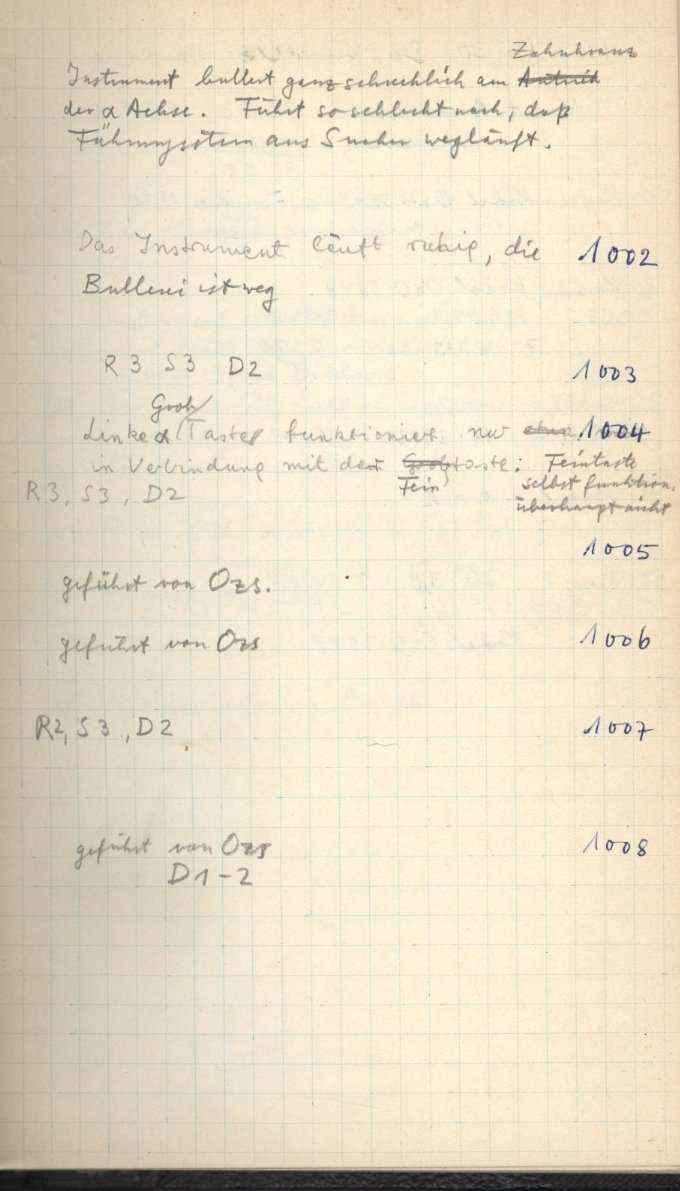 Zahnkranz
Instrument bullert ganz schrecklich am Antrieb
der α Achse. Führt so schlecht nach, daß
Führungsstern aus Sucher wegläuft.
Das Instrument läuft ruhig, die 1002
Bullerei ist weg
R3 S3 D2 1003
Grob
Linke α Taste funktioniert nur 1004
in Verbindung mit der Grobtaste; Feintaste
Fein selbst funktion.
R3, S3, D2 überhaupt nicht
1005
geführt von Ozs.
geführt von Ozs 1006
R2, S3, D2 1007
geführt von Ozs 1008
D1-2